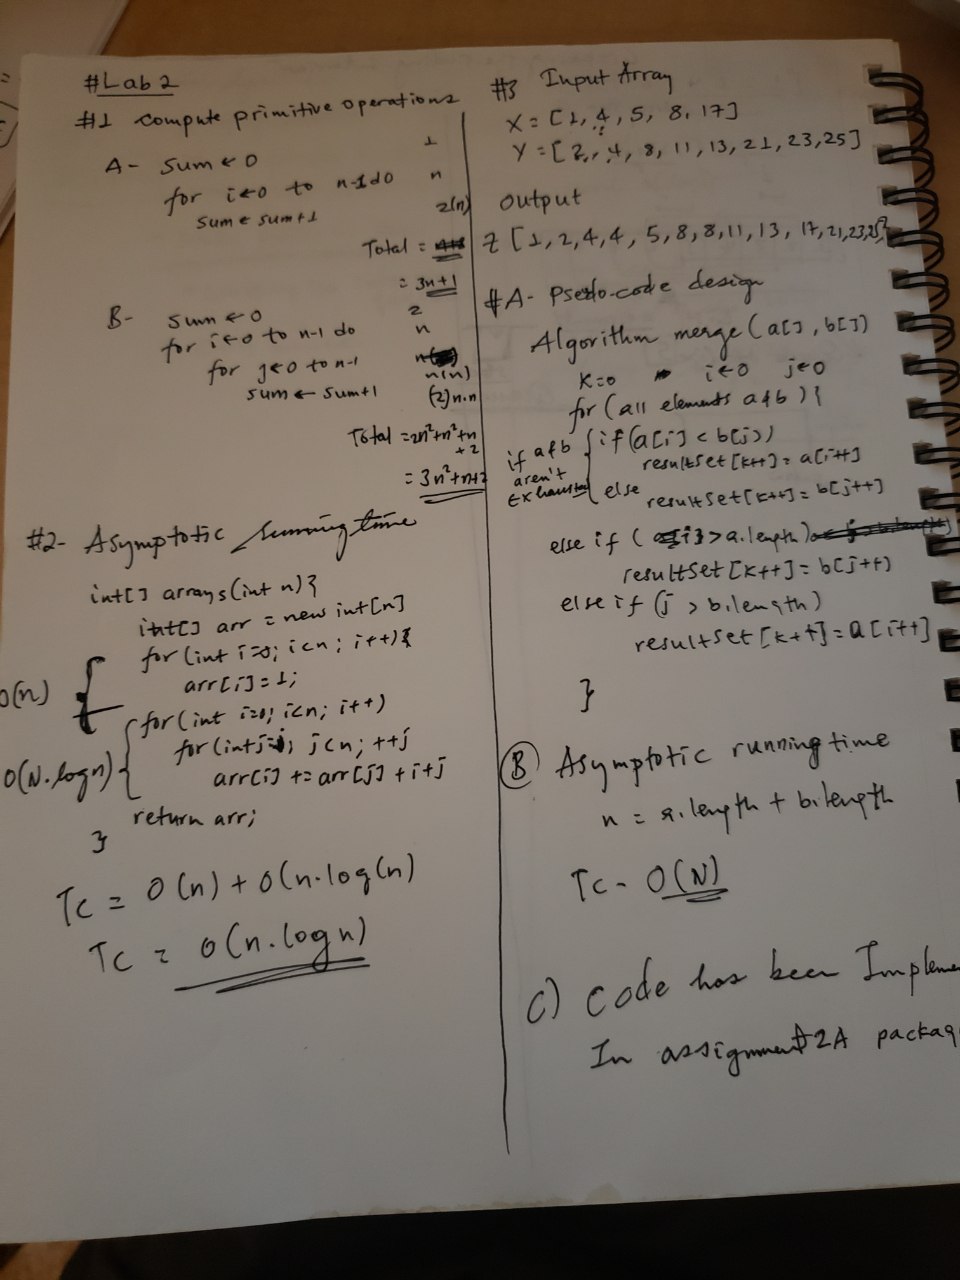 #Lab 2
#1 compute primitive operations
A- sum ← 0 1
for i←0 to n-1 do n
sum ← sum+1 2(n)
Total =
= 3n+1
B- sum ← 0 2
for i←0 to n-1 do n
for j←0 to n-1 n(n)
sum ← sum+1 (2)n.n
Total = 2n²+n²+n
+2
= 3n²+n+2
#2- Asymptotic running time
int[] arrays(int n){
int[] arr = new int[n]
for (int i=0; i<n; i++){
O(n)
arr[i]=1;
for (int i=0; i<n; i++)
for (int j=i; j<n; ++j
O(N.logn)
arr[i] += arr[j] + i+j
return arr;
}
Tc = O(n) + O(n.log(n)
Tc = O(n.logn)
#3 Input Array
X = [1, 4, 5, 8, 17]
Y = [2, 4, 8, 11, 13, 21, 23, 25]
output
Z [1, 2, 4, 4, 5, 8, 8, 11, 13, 17, 21, 23, 25]
#A- Psedo-code design
Algorithm merge (a[], b[])
K=0 i←0 j←0
for (all elements a&b){
if a&b
aren't
Exhausted
if (a[i] < b[j])
resultset[k++] = a[i++]
else
resultset[k++] = b[j++]
else if (i > a.length)
resultSet[k++] = b[j++)
else if (j > b.length)
resultset[k++] = a[i++]
}
(B) Asymptotic running time
n = a.length + b.length
Tc - O(N)
C) Code has been Impleme
In assignment#2A packag